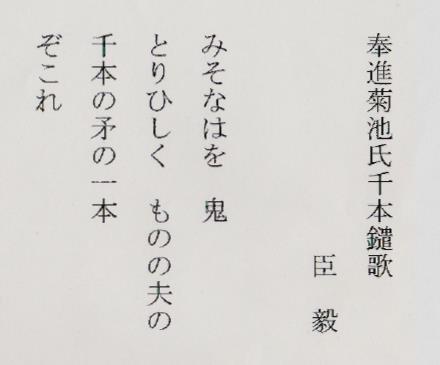 奉進菊池氏千本鑓歌
臣 毅
みそなはを 鬼
とりひしく ものの夫の
千本の矛の一本
ぞこれ